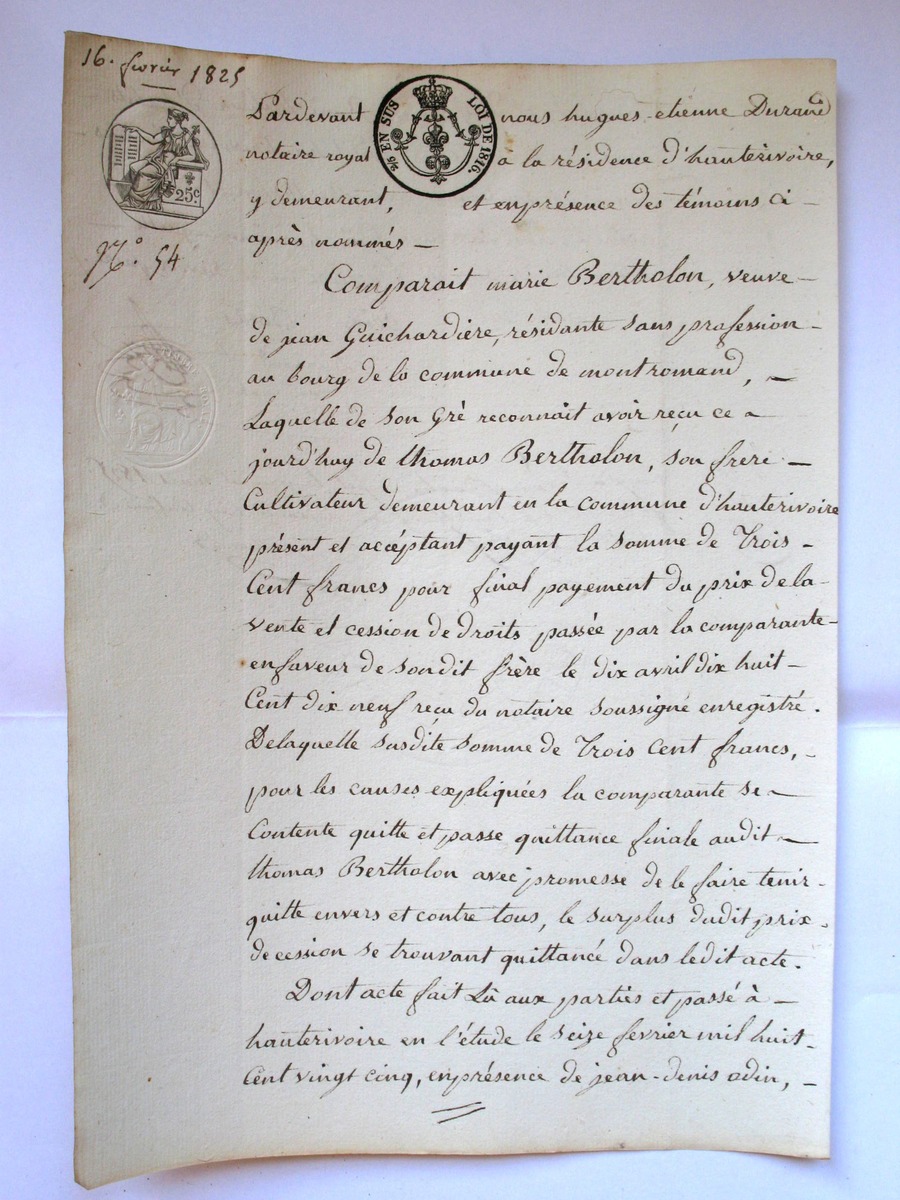 16. fevrier 1825
25c.
N.º 54
2/5 EN SUS LOI DE 1816.
Pardevant nous hugues-etienne Durand
notaire royal à la résidence d'hauterivoire,
y demeurant, et enprésence des témoins ci-
après nommés —
Comparait marie Bertholon, veuve —
de jean Guichardiere, résidante sans profession -
au bourg de la commune de montromand, —
Laquelle de son gré reconnait avoir reçu ce -
jourd'huy de thomas Bertholon, son frere —
Cultivateur demeurant en la commune d'hauterivoire
présent et accéptant payant la somme de Trois -
Cent francs pour final payement du prix de la -
vente et cession de droits passée par la comparante -
enfaveur de sondit frère le dix avril dix huit -
Cent dix neuf reçu du notaire soussigné enregistré.
Delaquelle susdite somme de Trois cent francs, -
pour les causes expliquées la comparante se -
Contente quitte et passe quittance finale audit -
thomas Bertholon avec promesse de le faire tenir -
quitte envers et contre tous, le surplus dudit prix -
de cession se trouvant quittancé dans ledit acte.
Dont acte fait Lu aux parties et passé à -
hauterivoire en l'étude le seize fevrier mil huit -
Cent vingt cinq, enprésence de jean-denis odin, -